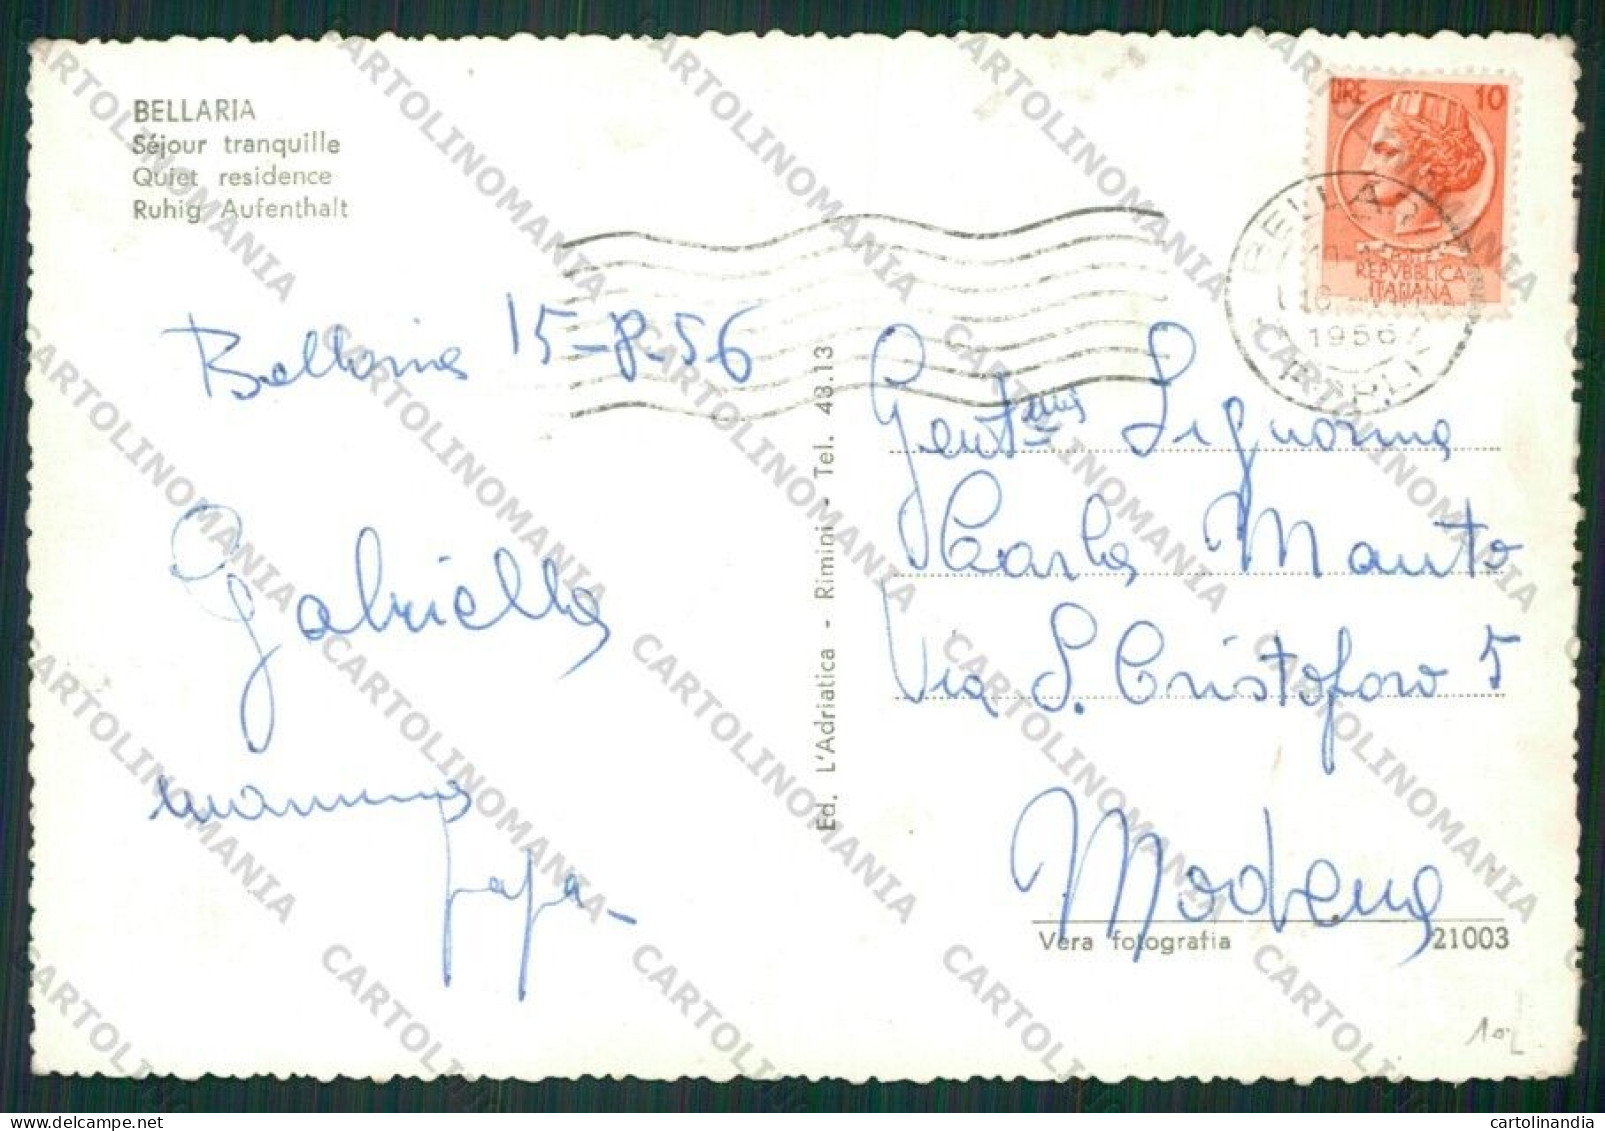 BELLARIA
Séjour tranquille
Quiet residence
Ruhig Aufenthalt
Bellaria 15-8-56
Gabriella
mamma
papà
Ed. L'Adriatica - Rimini - Tel. 43.13
LIRE 10
REPVBBLICA
ITALIANA
BELLARIA
1956
FORLI
Gent.ma Signorina
Carla Manto
Via S. Cristoforo 5
Modena
Vera fotografia 21003
CARTOLINOMANIA
cartolinandia